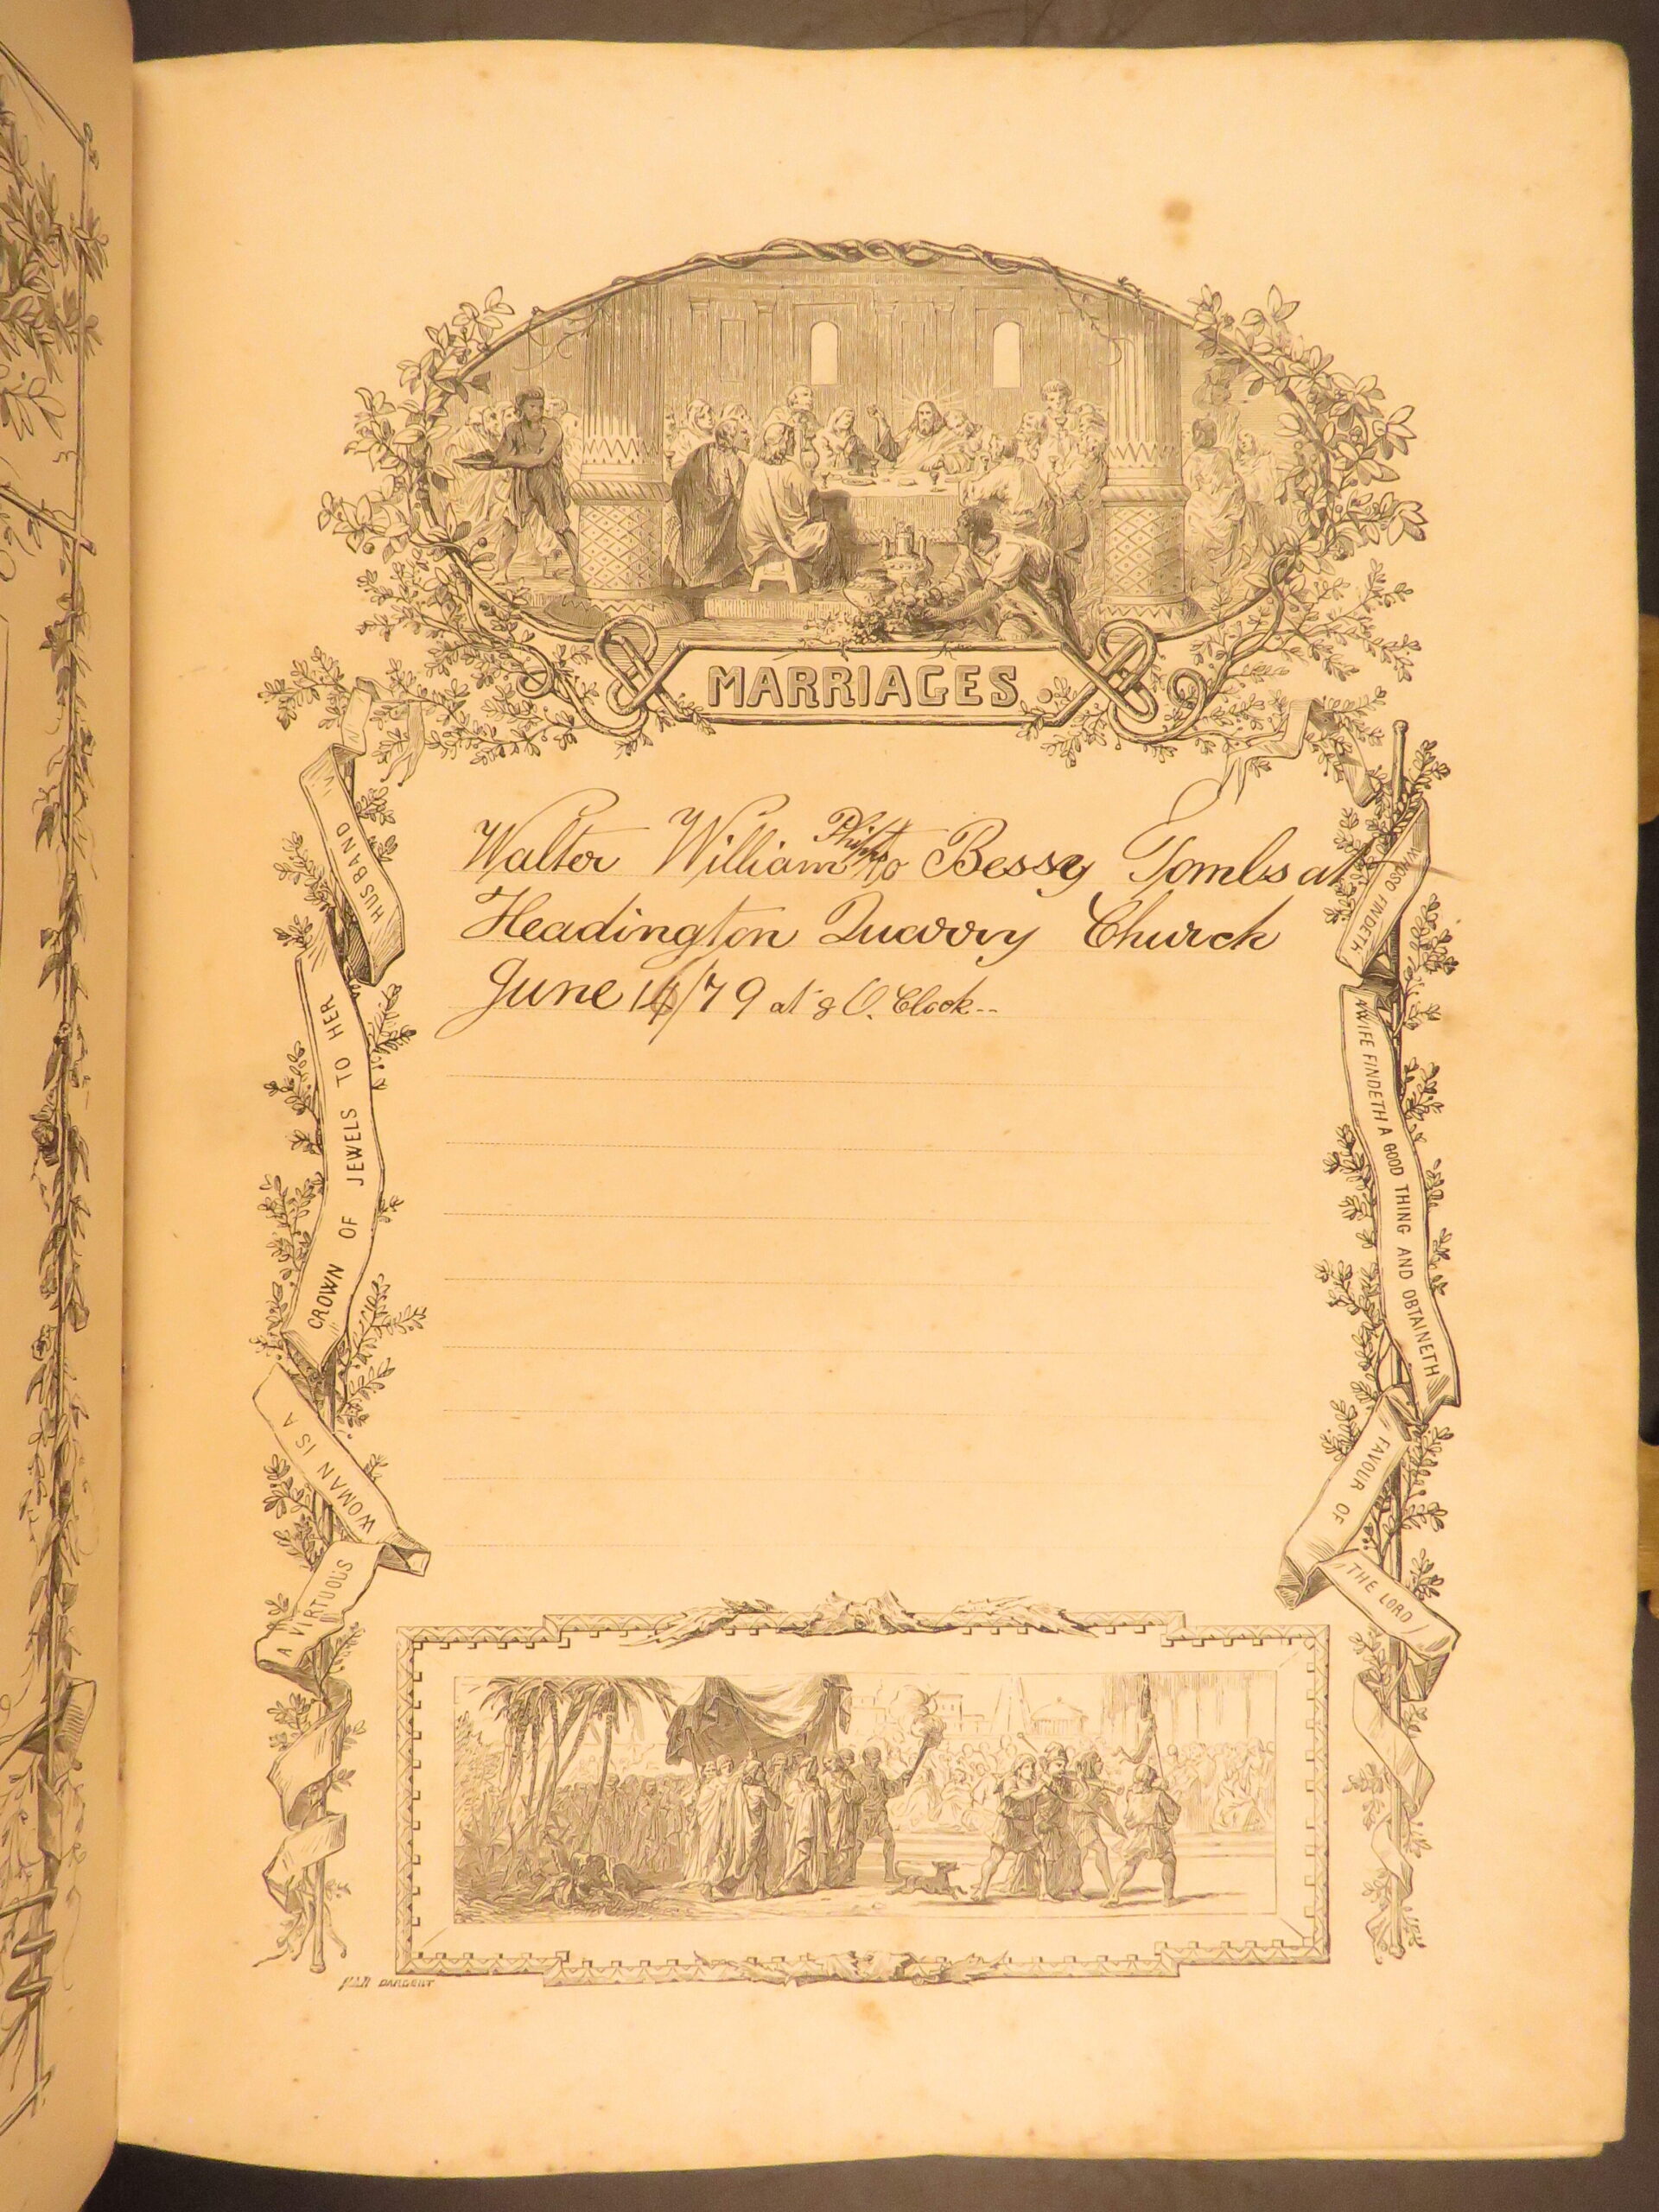 MARRIAGES
Walter William Phipps to Bessy Tombs at
Headington Quarry Church
June 14/79 at 8 O. Clock--
A VIRTUOUS
WOMAN IS A
CROWN OF JEWELS TO HER
HUSBAND
WHOSO FINDETH
A WIFE FINDETH A GOOD THING AND OBTAINETH
FAVOUR OF
THE LORD
YAN DARGENT